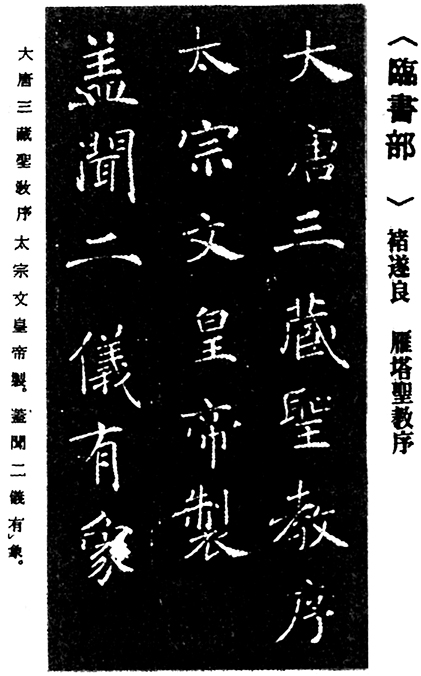 〈臨書部　〉　褚遂良　雁塔聖教序
大唐三蔵聖教序
太宗文皇帝製
盖聞二儀有象
大唐三藏聖教序 太宗文皇帝製。蓋聞二儀有」象。